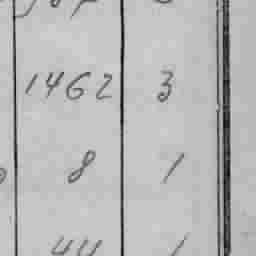 1462 3
8 1
44 1